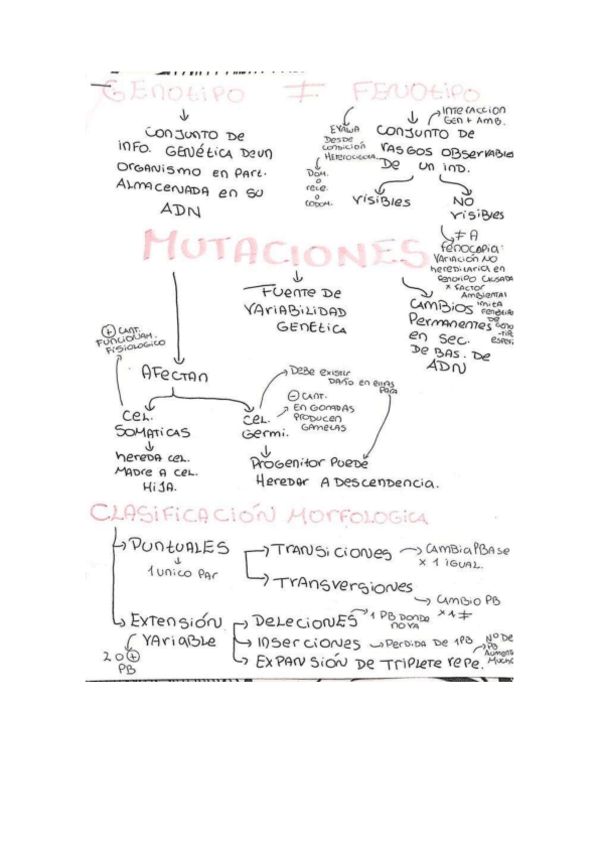 GENOTIPO ≠ FENOTIPO
CONJUNTO DE
INFO. GENÉTICA DE UN
ORGANISMO EN PART.
ALMACENADA EN SU
ADN
EVALUA
DESDE
CONDICIÓN
DOM.
O
rece.
O
CODOM.
INTERACCION
GEN + AMB.
CONJUNTO DE
RASGOS OBSERVABLES
DE UN IND.
VISIBLES
NO
VISIBLES
≠ A
FENOCOPIA:
VARIACIÓN NO
hereditaria en
causada
x FACTOR
AMBIENTAL
imita
MUTACIONES
FUENTE DE
VARIABILIDAD
GENÉTICA
CAMBIOS
PERMANENTES
EN SEC.
DE BAS. DE
ADN
+ CANT.
FUNCIONAM.
FISIOLOGICO
AFECTAN
CEL.
SOMATICAS
hereda CEL.
MADRE A CEL.
HIJA.
CEL.
GERMI.
DEBE EXISTIR
DAÑO EN
- CANT.
EN GONADAS
PRODUCEN
GAMETAS
PROGENITOR PUEDE
HEREDAR A DESCENDENCIA.
CLASIFICACIÓN MORFOLOGICA
PUNTUALES
1 UNICO PAR
TRANSICIONES
CAMBIA PBASE
x 1 IGUAL.
TRANSVERSIONES
CAMBIO PB
x 1 ≠
EXTENSIÓN
VARIABLE
2 O +
PB
DELECIONES
1 PB DONDE
NO VA
INSERCIONES
PERDIDA DE 1PB
EXPANSIÓN DE TRIPLETE REPE.
Nº DE
PB